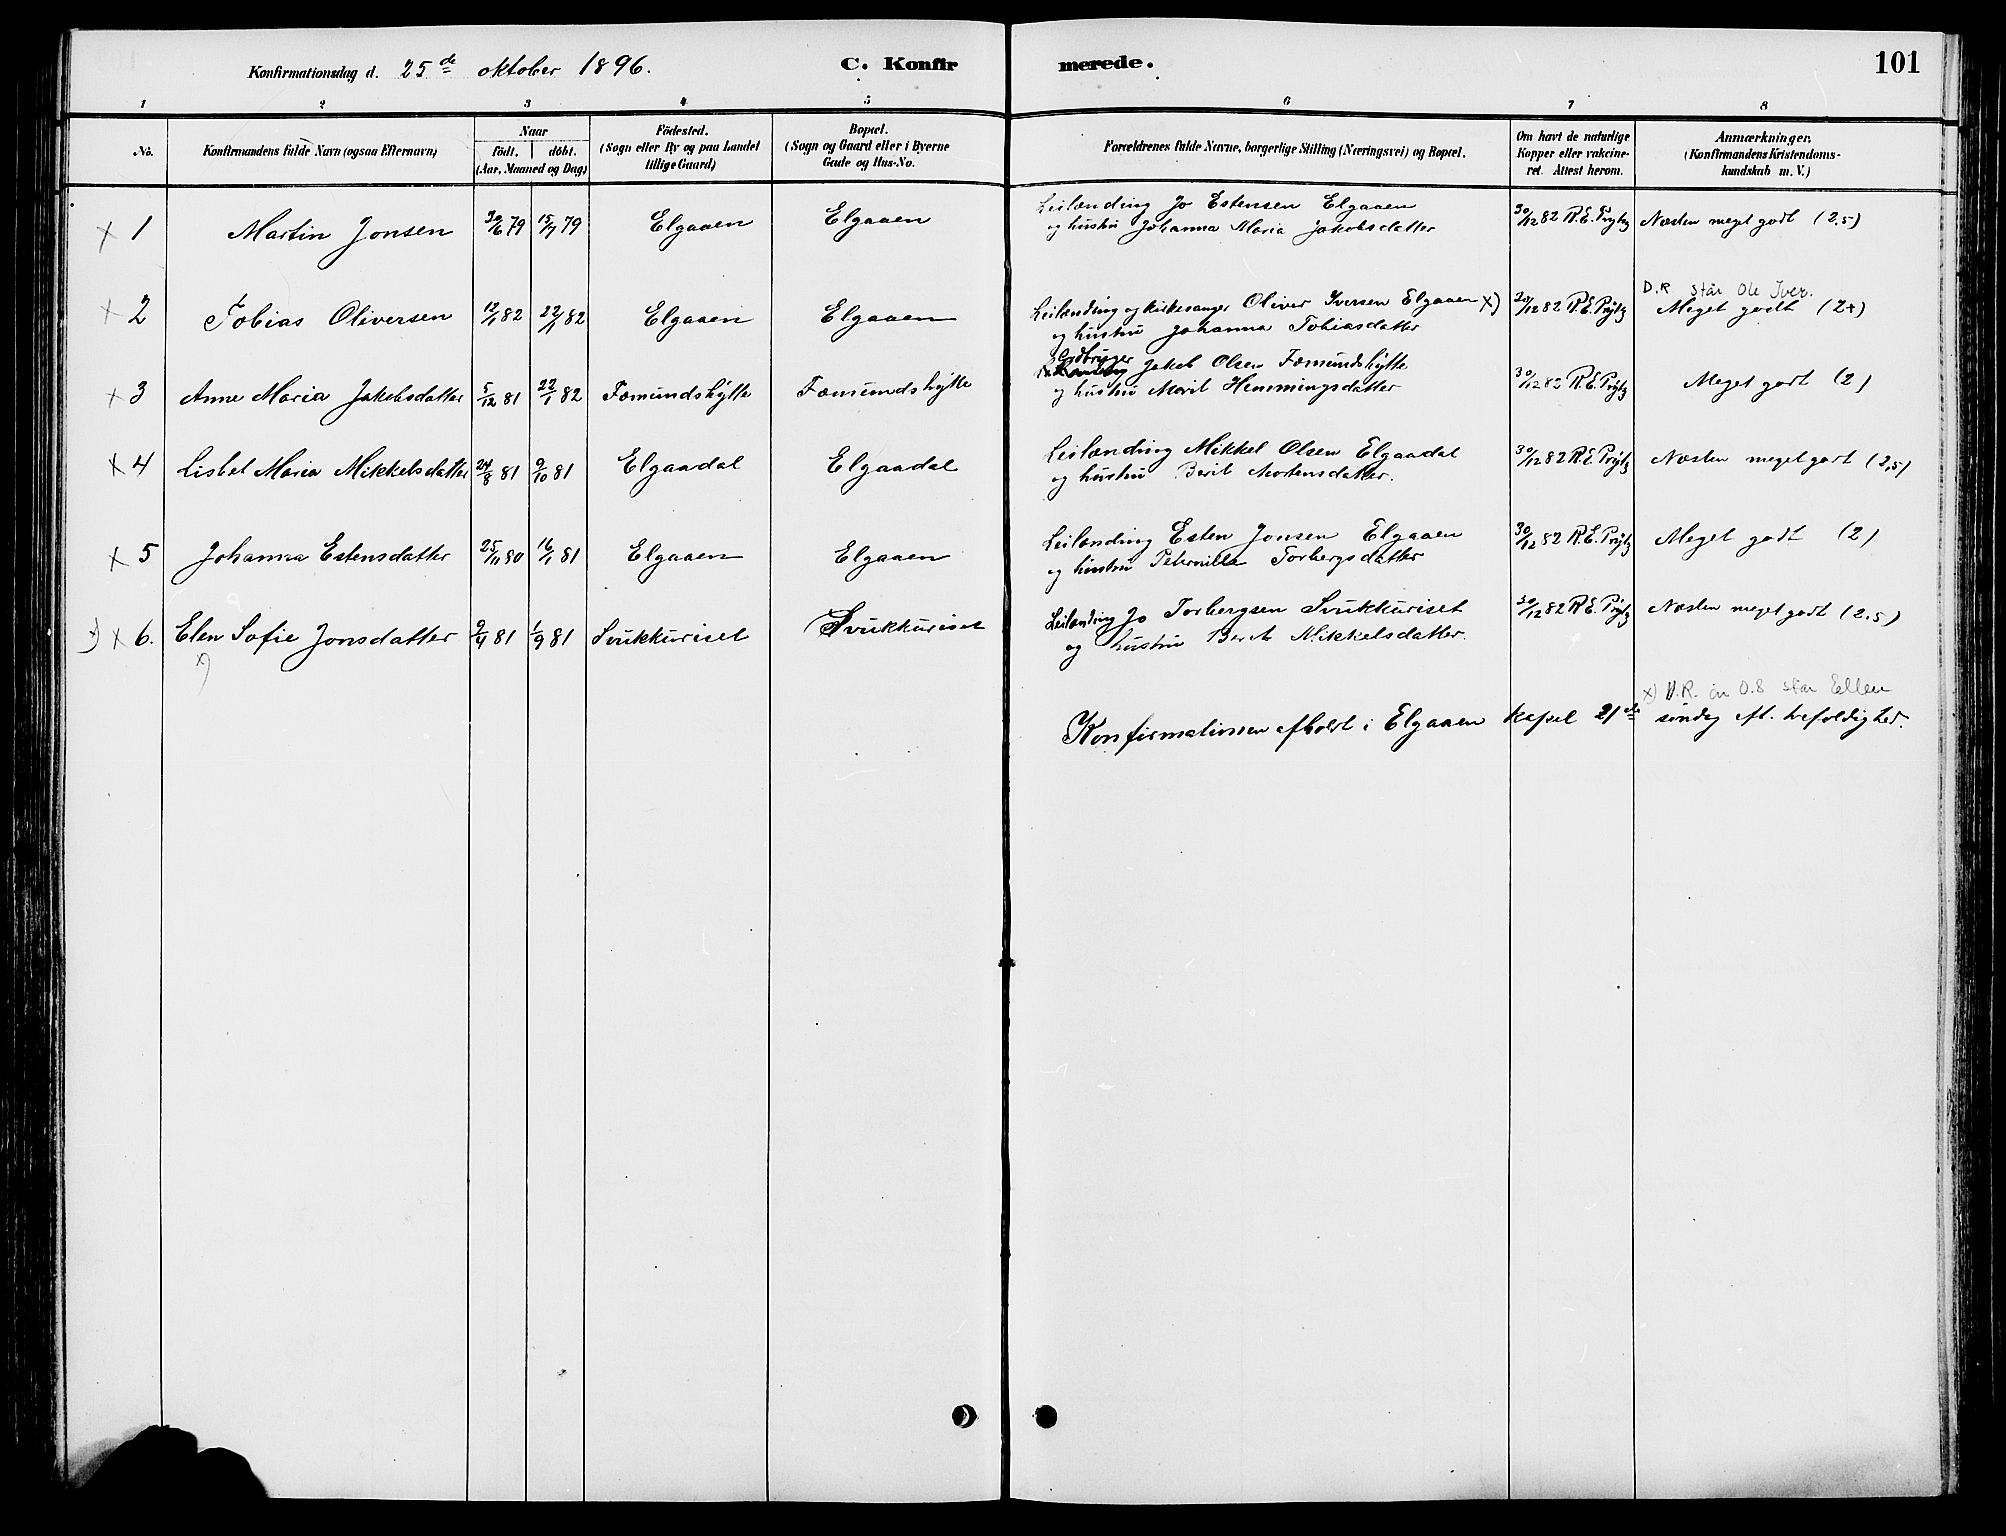 Konfirmationsdag d. 25de oktober 1896. C. Konfir merede. 101
1 2 3 4 5 6 7 8
No. Konfirmandens fulde Navn (ogsaa Efternavn) Naar födt. döbt. (Aar, Maaned og Dag) Födested. (Sogn eller By og paa Landet tillige Gaard) Bopæl. (Sogn og Gaard eller i Byerne Gade og Hus-No. Forældrenes fulde Navne, borgerlige Stilling (Næringsvei) og Bopæl. Om havt de naturlige Kopper eller vakcineret. Attest herom. Anmærkninger. (Konfirmandens Kristendomskundskab m. V.)
x 1 Martin Jonsen 30/6 79 15/7 79 Elgaaen Elgaaen Leilænding Jo Estensen Elgaaen 30/12 82 R.E. Prytz Næsten meget godt (2,5)
og hustru Johanna Maria Jakobsdatter
D.R står Ole Iver.
x 2 Tobias Oliversen 12/1 82 22/1 82 Elgaaen Elgaaen Leilænding og kirkesanger Oliver Iversen Elgaaen x) 30/12 82 R.E. Prytz Meget godt (2+)
og hustru Johanna Tobiasdatter
x 3 Anne Maria Jakobsdatter 5/12 81 22/1 82 Fæmundshytte Fæmundshytte Jordbruger Jakob Olsen Fæmundshytte 30/12 82 R.E. Prytz Meget godt (2)
og hustru Marit Hemmingsdatter
x 4 Lisbet Maria Mikkelsdatter 24/8 81 9/10 81 Elgaadal Elgaadal Leilænding Mikkel Olsen Elgaadal 30/12 82 R.E. Prytz Næsten meget godt (2,5)
og hustru Berit Mortensdatter.
x 5 Johanna Estensdatter 25/11 80 16/1 81 Elgaaen Elgaaen Leilænding Esten Jonsen Elgaaen 30/12 82 R.E. Prytz Meget godt (2)
og hustru Peternilla Torbergsdatter
x) x 6. Elen Sofie Jonsdatter 9/4 81 1/9 81 Svukkuriset Svukkuriset Leilænding Jo Torbergsen Svukkuriset 30/12 82 R.E. Prytz Næsten meget godt (2,5)
x)
og hustru Berit Mikkelsdatter.
x) D.R. står Ellen
Konfirmationen afholdt i Elgaaen kapel 21de søndag eft. trefoldighed.